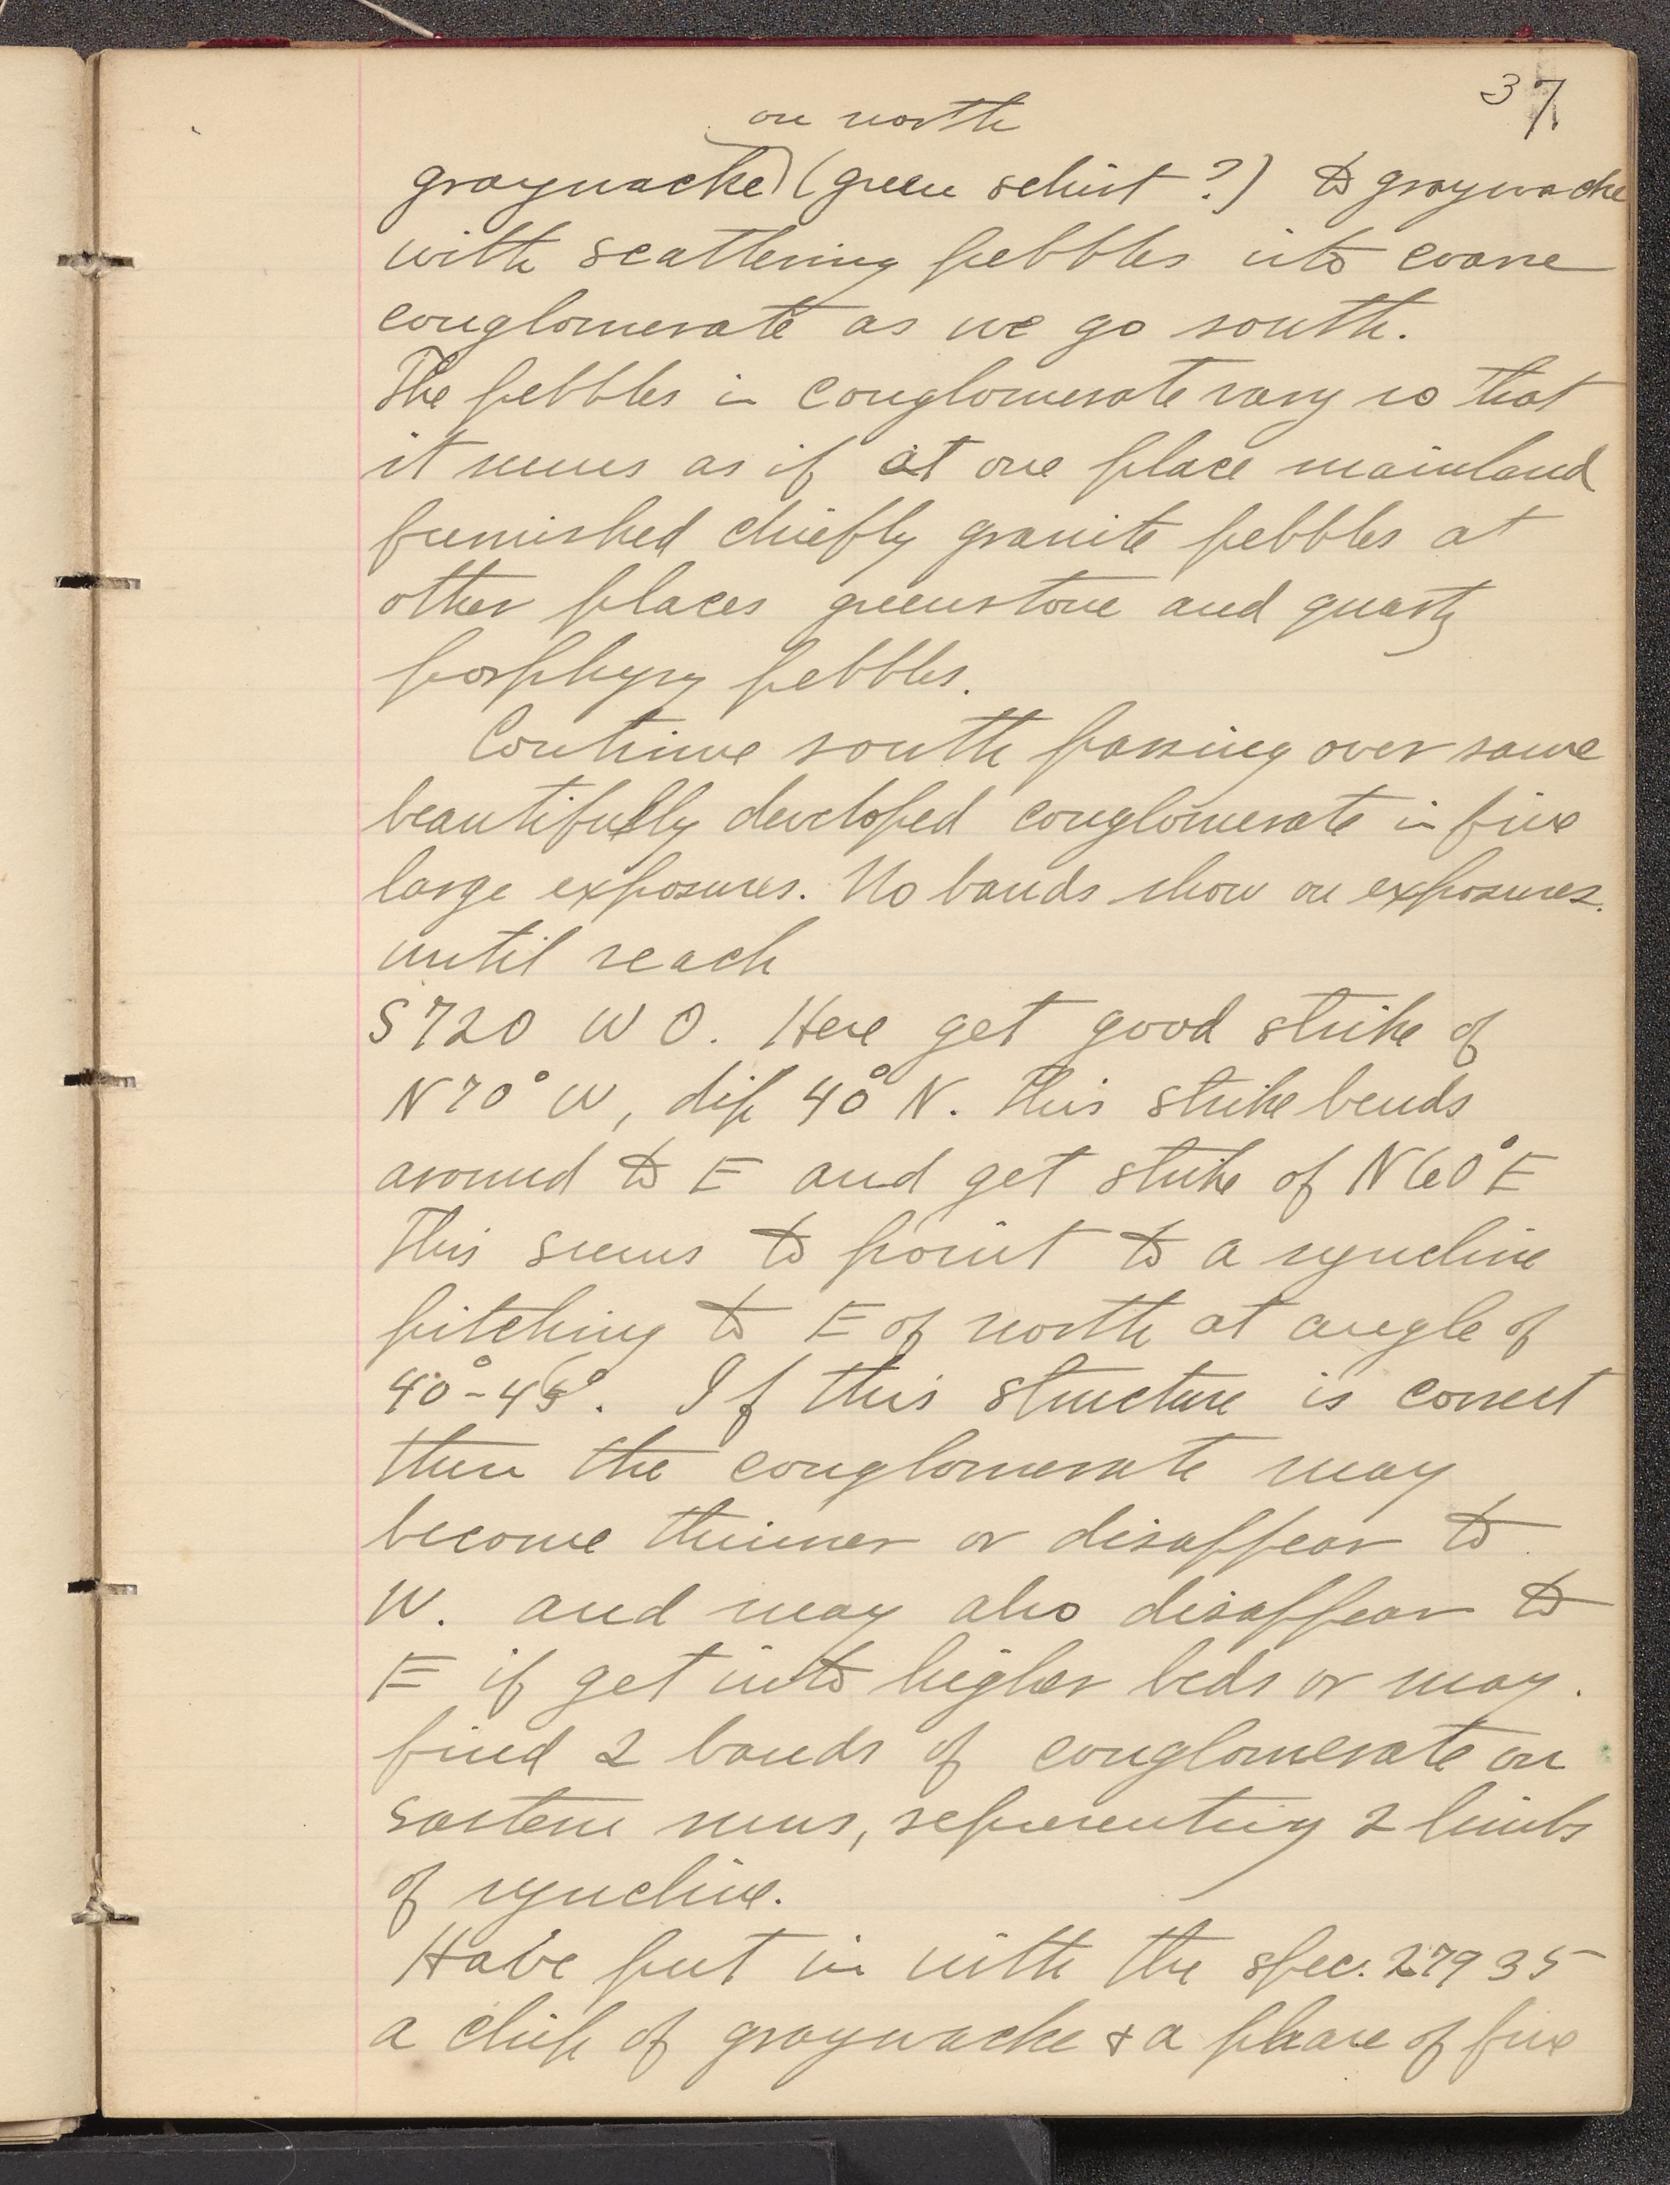 37
on north
graywacke (green schist ?) to graywacke
with scattering pebbles into coarse
conglomerate as we go south.
The pebbles in conglomerate vary so that
it seems as if at one place mainland
furnished chiefly granite pebbles at
other places greenstone and quartz
porphyry pebbles.
Continue south passing over same
beautifully developed conglomerate in fine
large exposures. No bands show on exposures.
until reach
S 720 W 0. Here get good strike of
N 70° W, dip 40° N. This strike bends
around to E and get strike of N 60° E
This seems to point to a syncline
pitching to E of north at angle of
40°-45°. If this structure is correct
then the conglomerate may
become thinner or disappear to
W. and may also disappear to
E if get into higher beds or may.
find 2 bands of conglomerate on
eastern runs, representing 2 limbs
of syncline.
Have put in with the spec. 27935
a chip of graywacke & a phase of fine